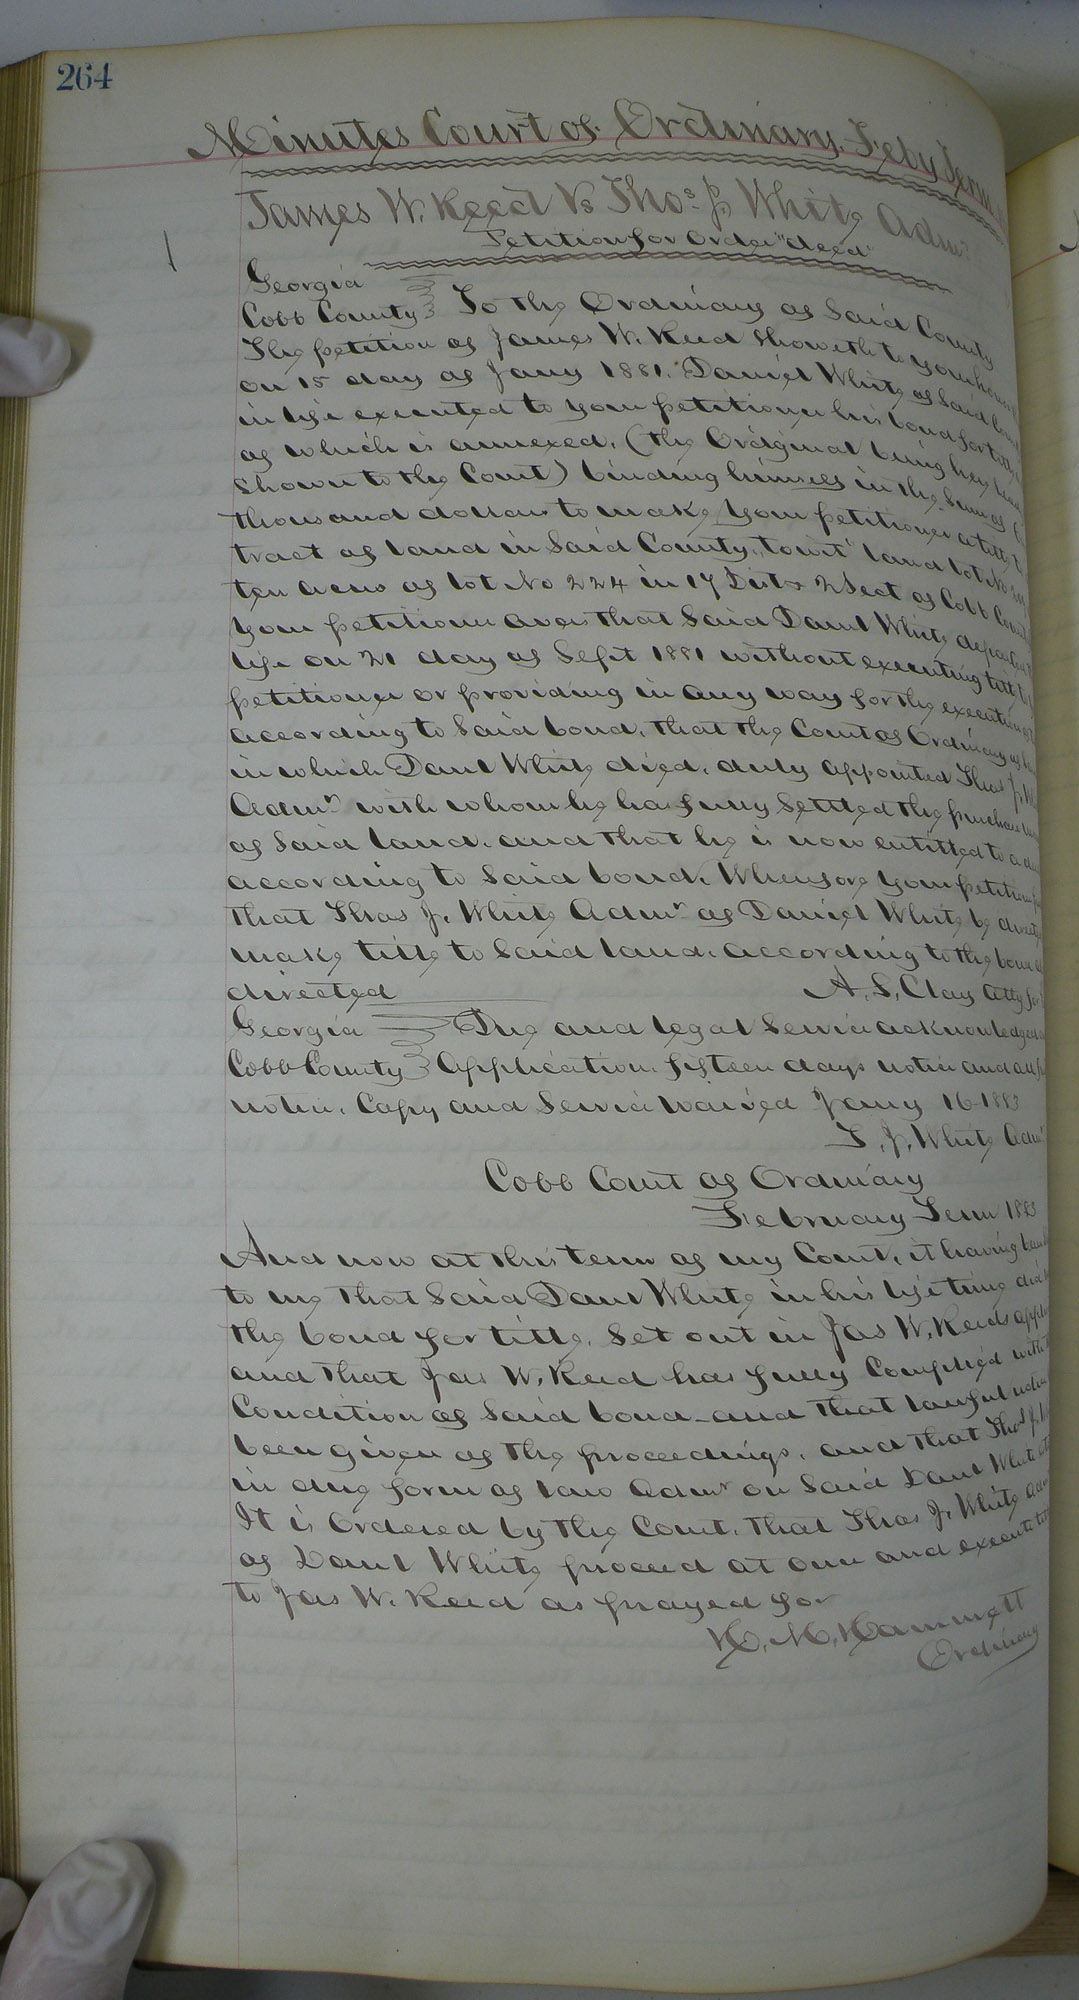 264
Minutes Court of Ordinary, Feby Term
James W. Reed Vs Thos. J. White Adm.r
Petition for Order "deed"
Georgia
Cobb County To the Ordinary of Said County
The petition of James W. Reed Showeth to your honor
on 15 day of Jany 1881. Daniel White of Said
in life executed to your petitioner his bond for title
of which is annexed, (the Original being here
Shown to the Court) binding himself in the Sum of
thousand dollars to make your petitioner a title to
tract of land in Said County, towit' land lot No
ten acres of lot No 224 in 17 Dist & 2 Sect of Cobb
Your petitioner avers that Said Danl White departed
life on 21 day of Sept 1881 without executing title to
petitioner or providing in any way for the execution
according to Said bond, that the Court of Ordinary of
in which Danl White died, duly appointed Thos J.
Admr with whom he has fully Settled the purchase
of Said land, and that he is now entitled to a
according to Said bond, Wherefore your petitioner
that Thos J. White Admr of Daniel White be
make title to Said land, according to the bond
directed A, S, Clay Atty for
Georgia Due and legal Service acknowledged
Cobb County Application, fifteen days notice and all
notice, Copy and Service waived Jany 16 1883
T, J, White Admr
Cobb Court of Ordinary
February Term 1883
And now at this term of my Court, it having
to me that Said Danl White in his lifetime did
the bond for title, Set out in Jas W, Reeds
and that Jas W, Reed has fully Complied with
Condition of Said bond and that lawful notice
been given of the proceedings, and that Thos J.
in due form of law Admr on Said Danl White
It is Ordered by the Court, that Thos J. White
of Danl White proceed at once and execute
to Jas W. Reed as prayed for
H, M, Hammett
Ordinary